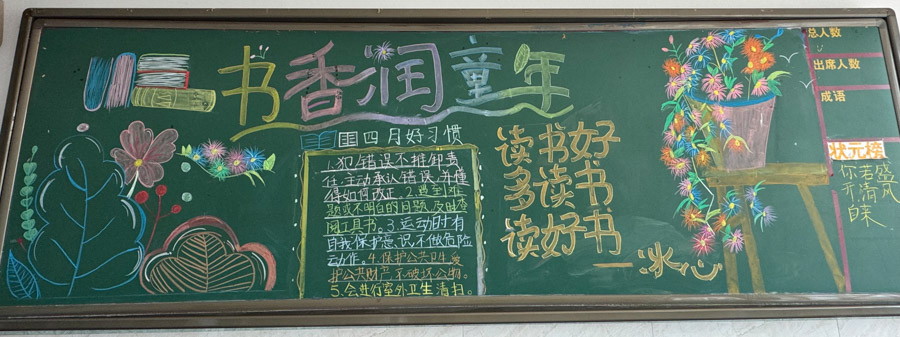 书香润童年
四月好习惯
1.犯错误不推卸责
任,主动承认错误,并懂
得如何改正。2.遇到难
题或不明白的问题,及时查
阅工具书。3.运动时有
自我保护意识,不做危险
动作。4.保护公共卫生,爱
护公共财产,不破坏公物。
5.会进行室外卫生清扫。
读书好
多读书
读好书
——冰心
总人数
出席人数
成语
状元榜
你若盛
开清风
自来